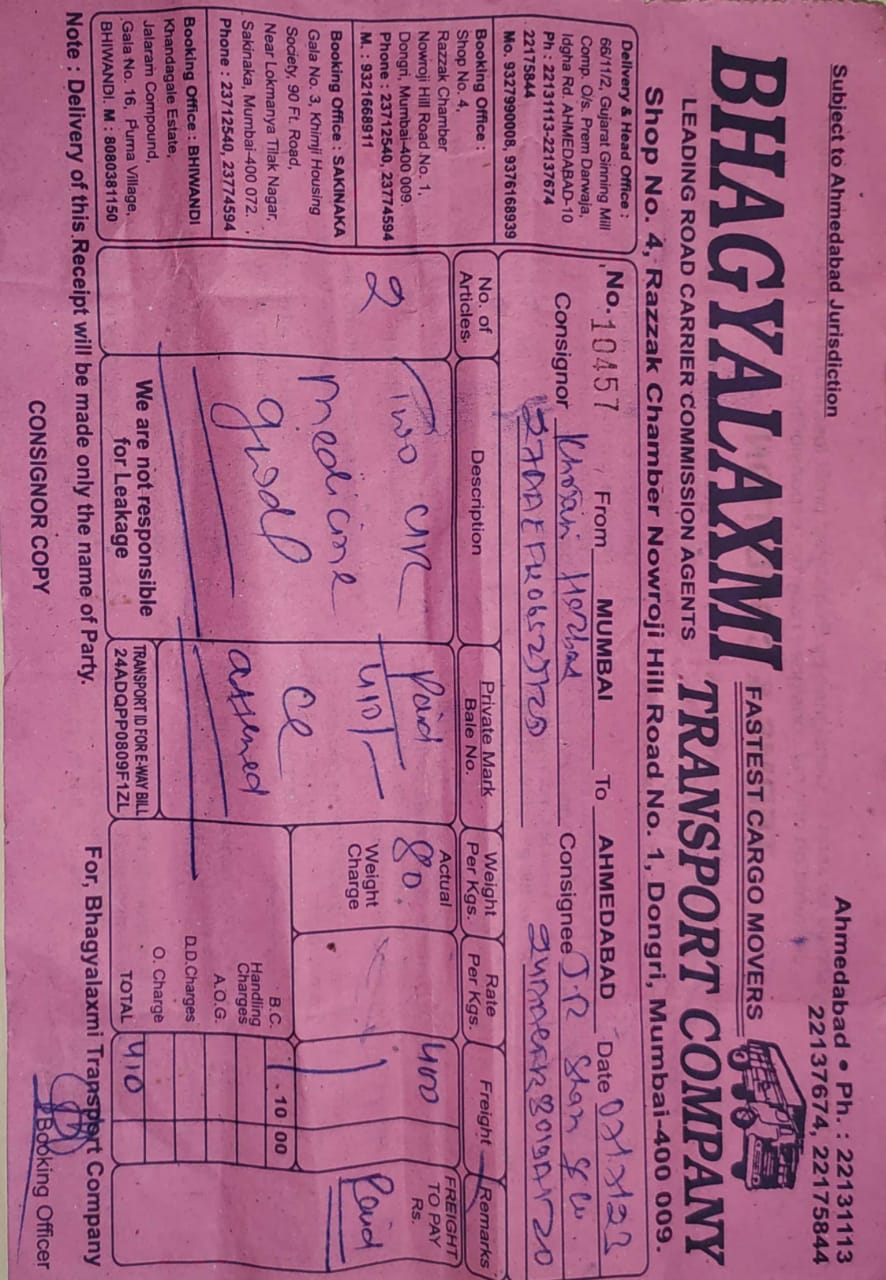 Subject to Ahmedabad Jurisdiction
Ahmedabad • Ph. : 22131113
22137674, 22175844
BHAGYALAXMI TRANSPORT COMPANY
FASTEST CARGO MOVERS
LEADING ROAD CARRIER COMMISSION AGENTS
Shop No. 4, Razzak Chamber Nowroji Hill Road No. 1, Dongri, Mumbai-400 009.
Delivery & Head Office :
66/11/2, Gujarat Ginning Mill
Comp. O/s. Prem Darwaja,
Idgha Rd. AHMEDABAD-10
Ph : 22131113-22137674
22175844
Mo. 9327990008, 9376168939
Booking Office :
Shop No. 4,
Razzak Chamber
Nowroji Hill Road No. 1,
Dongri, Mumbai-400 009.
Phone : 23712540, 23774594
M. : 9321668911
Booking Office : SAKINAKA
Gala No. 3, Khimji Housing
Society, 90 Ft. Road,
Near Lokmanya Tilak Nagar,
Sakinaka, Mumbai-400 072.
Phone : 23712540, 23774594
Booking Office : BHIWANDI
Khandagale Estate,
Jalaram Compound,
Gala No. 16, Purna Village,
BHIWANDI. M : 8080381150
No. 10457 From MUMBAI To AHMEDABAD Date
Consignor Herbal Consignee J.R Shah & Co
No. of Articles. Description Private Mark Bale No. Weight Per Kgs. Rate Per Kgs. Freight Remarks
2 Two Paid 410/- Actual 80 400 FREIGHT TO PAY Rs.
medicine Weight Charge Paid
good
B.C. 10 00
Handling Charges
A.O.G.
D.D.Charges
O. Charge
TOTAL 410
We are not responsible
for Leakage
TRANSPORT ID FOR E-WAY BILL
24ADQPP0809F1ZL
Note : Delivery of this Receipt will be made only the name of Party.
For, Bhagyalaxmi Transport Company
CONSIGNOR COPY
Booking Officer